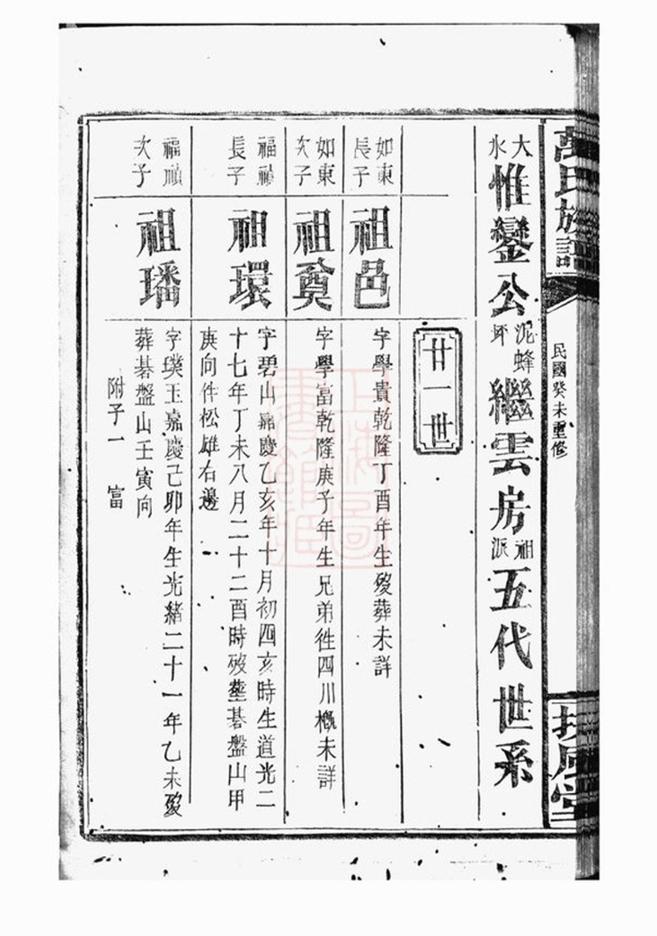 萬氏族譜
民國癸未重修
扶風堂
大水惟鑾公泥蜂坪繼雲房祖派五代世系
廿一世
如東長子
祖邑
字學貴乾隆丁酉年生歿葬未詳
如東次子
祖奠
字學富乾隆庚子年生兄弟徃四川概未詳
福禎長子
祖環
字碧山嘉慶乙亥年十月初四亥時生道光二
十七年丁未八月二十二酉時歿塟碁盤山甲
庚向件松雄右邊
福禎次子
祖璠
字璞玉嘉慶己卯年生光緒二十一年乙未歿
葬碁盤山壬寅向
附子一 富